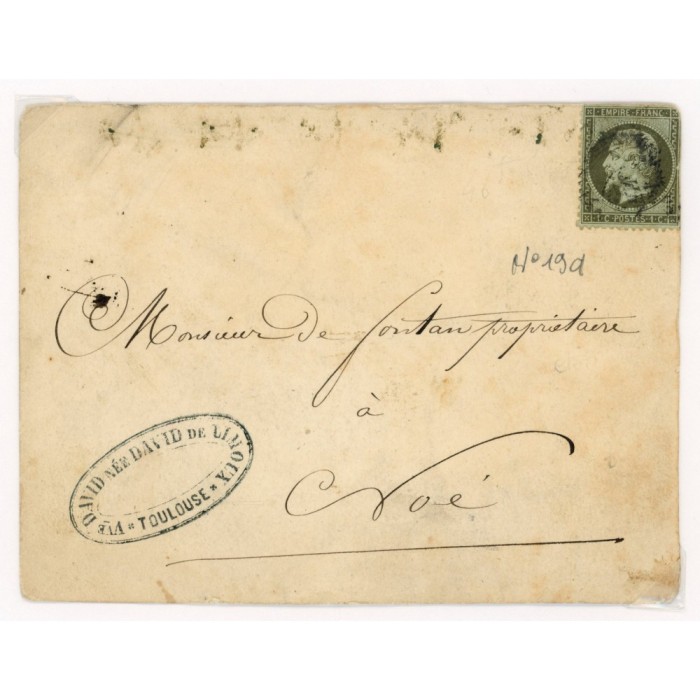 EMPIRE FRANC
1 C POSTES 1 C
No 19d
Monsieur de Gontan propriétaire
à
Noé
Vve DAVID NÉE DAVID DE LIMOUX
* TOULOUSE *